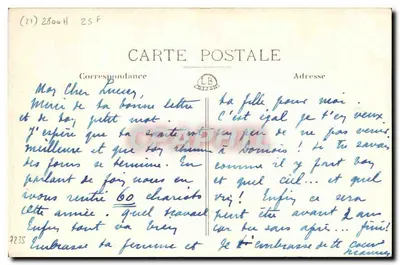 (21) 2800H 25F
CARTE POSTALE
Correspondance
Adresse
LB
Mon Cher Lucien,
Merci de ta bonne lettre
et de ton petit mot.
J'espère que ta santé est
meilleure et que ton
des se termine. En
parlant de foin nous en
avons rentré 60 chariots
cette année. Quel travail
Enfin tout va bien
Embrasse ta femme et
ta fille pour moi.
C'est égal je t'en veux
un peu de ne pas venir
à . Si tu savais
comme il y fait bon
et quel ciel... et quel
! Enfin ce sera
peut être avant 2 ans
car de sans
Je t'embrasse de tt coeur
7235